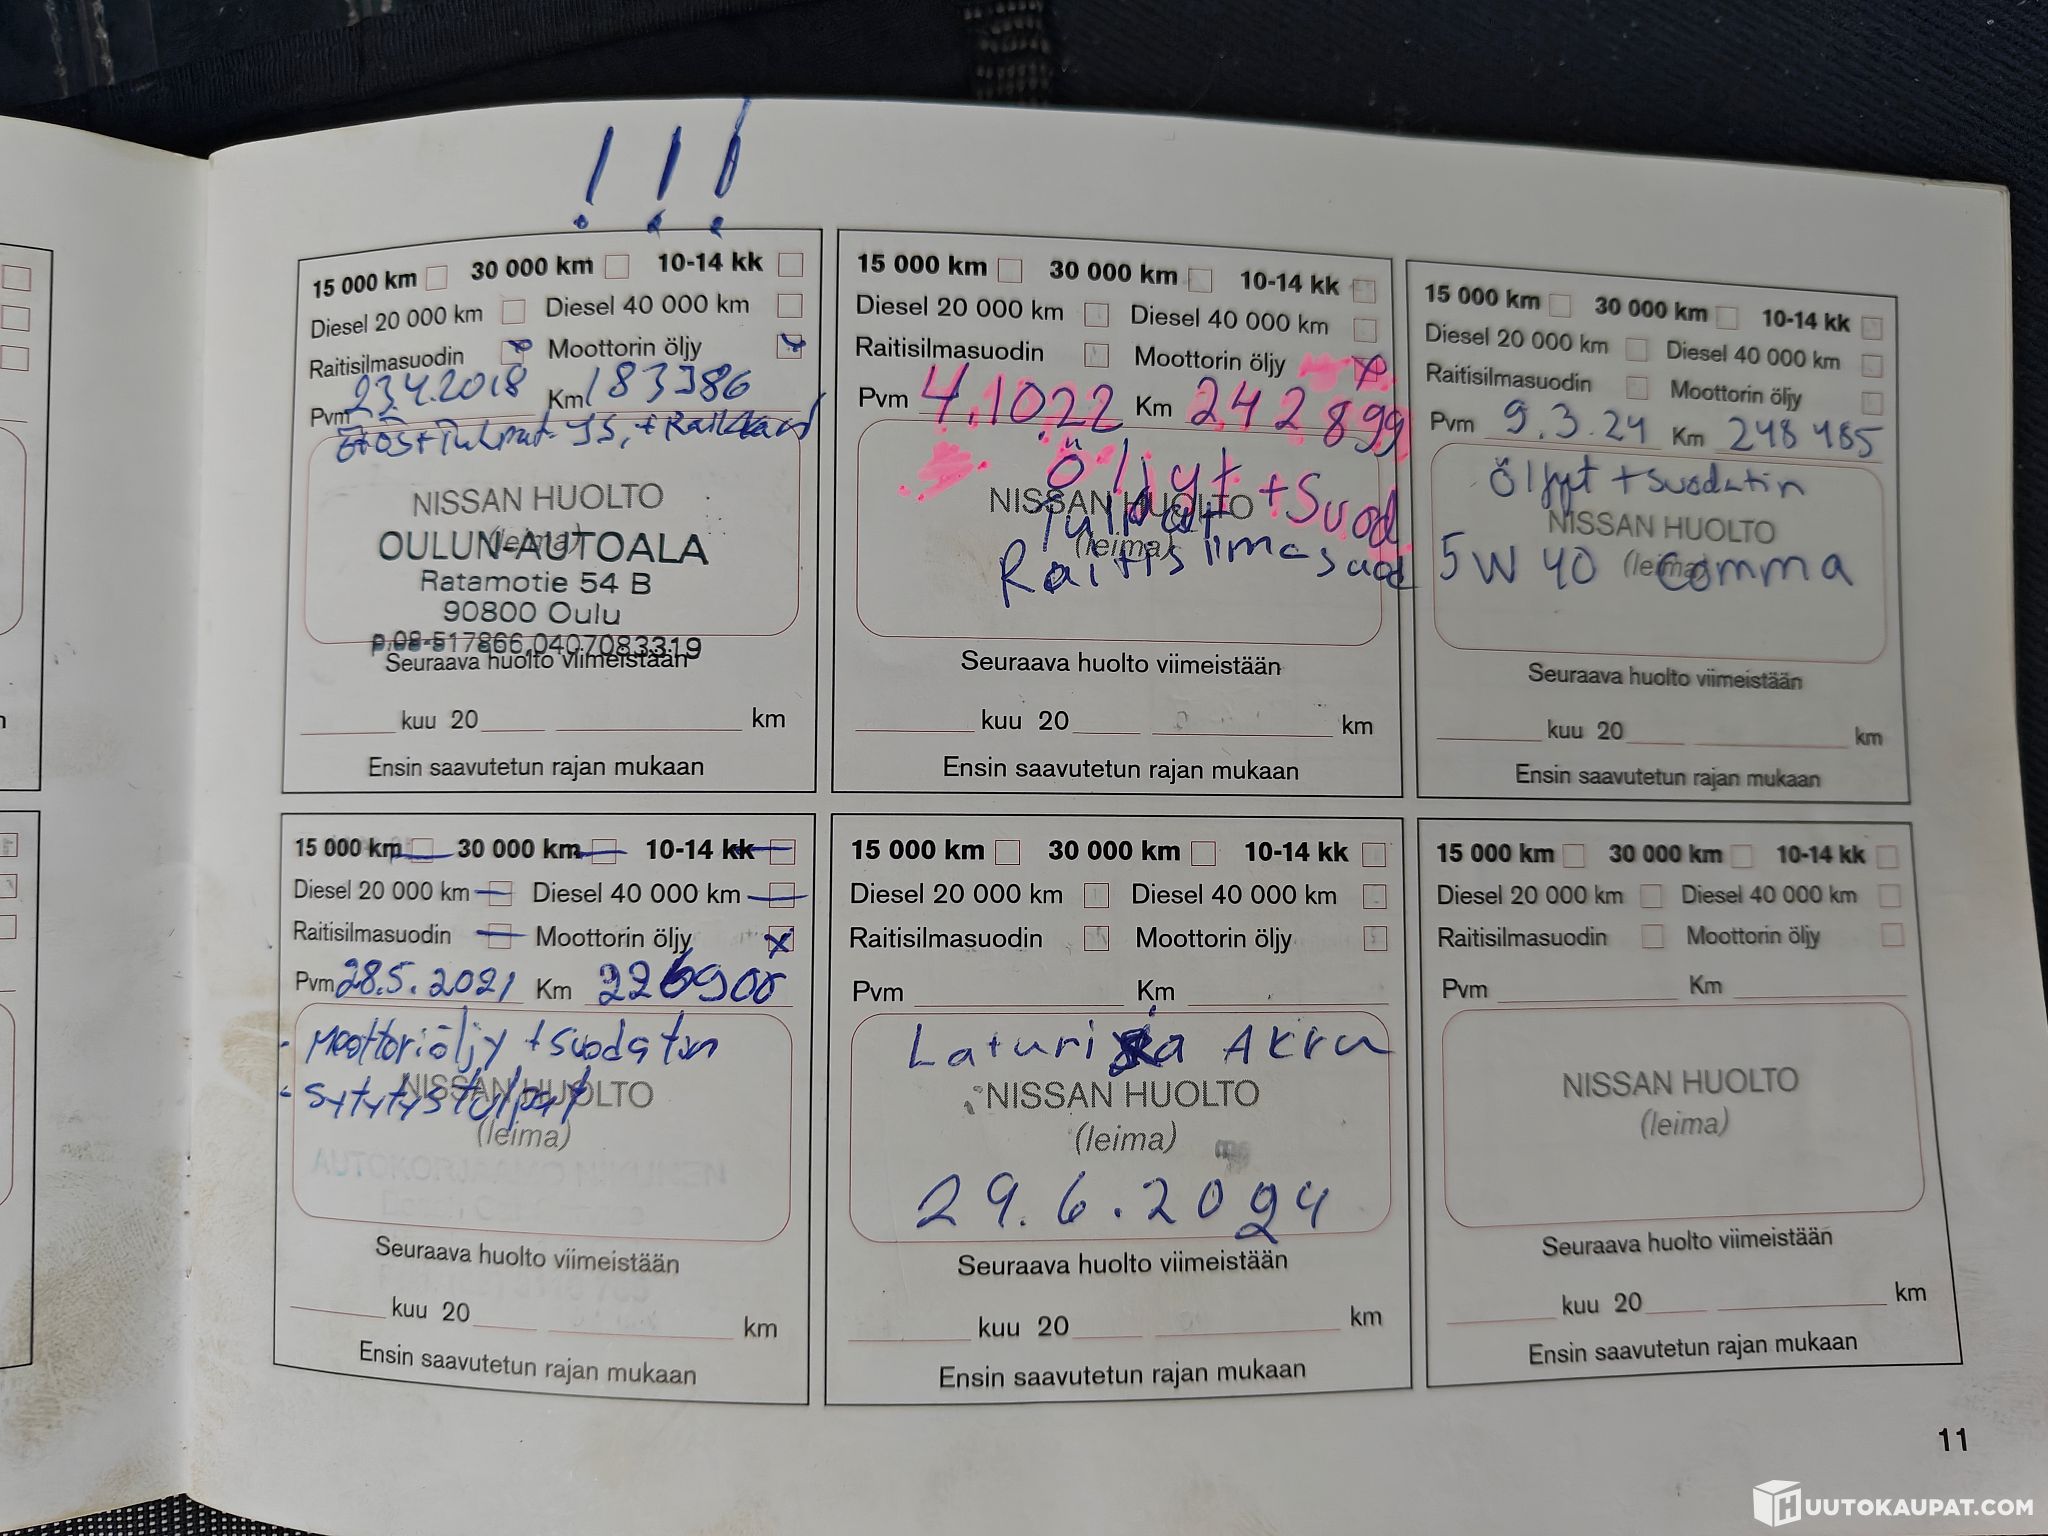 ! ! !
15 000 km 30 000 km 10-14 kk
Diesel 20 000 km Diesel 40 000 km
Raitisilmasuodin Moottorin öljy
Pvm 23.4.2018 Km 183386
NISSAN HUOLTO
(leima)
OULUN-AUTOALA
Ratamotie 54 B
90800 Oulu
p.08-517866,0407083319
Seuraava huolto viimeistään
kuu 20 km
Ensin saavutetun rajan mukaan
15 000 km 30 000 km 10-14 kk
Diesel 20 000 km Diesel 40 000 km
Raitisilmasuodin Moottorin öljy
Pvm 4.10.22 Km 242 899
Öljyt + Suod
NISSAN HUOLTO
Tulpat
(leima)
Raitisilmasuod
Seuraava huolto viimeistään
kuu 20 km
Ensin saavutetun rajan mukaan
15 000 km 30 000 km 10-14 kk
Diesel 20 000 km Diesel 40 000 km
Raitisilmasuodin Moottorin öljy
Pvm 9.3.24 Km 248 485
Öljyt + suodatin
NISSAN HUOLTO
5W 40 (leima) Comma
Seuraava huolto viimeistään
kuu 20 km
Ensin saavutetun rajan mukaan
15 000 km 30 000 km 10-14 kk
Diesel 20 000 km Diesel 40 000 km
Raitisilmasuodin Moottorin öljy
Pvm 28.5.2021 Km 226900
- Moottoriöljy + suodatin
NISSAN HUOLTO
- sytytystulpat
(leima)
Seuraava huolto viimeistään
kuu 20 km
Ensin saavutetun rajan mukaan
15 000 km 30 000 km 10-14 kk
Diesel 20 000 km Diesel 40 000 km
Raitisilmasuodin Moottorin öljy
Pvm Km
Laturi ja Akku
NISSAN HUOLTO
(leima)
29.6.2024
Seuraava huolto viimeistään
kuu 20 km
Ensin saavutetun rajan mukaan
15 000 km 30 000 km 10-14 kk
Diesel 20 000 km Diesel 40 000 km
Raitisilmasuodin Moottorin öljy
Pvm Km
NISSAN HUOLTO
(leima)
Seuraava huolto viimeistään
kuu 20 km
Ensin saavutetun rajan mukaan
11
HUUTOKAUPAT.COM